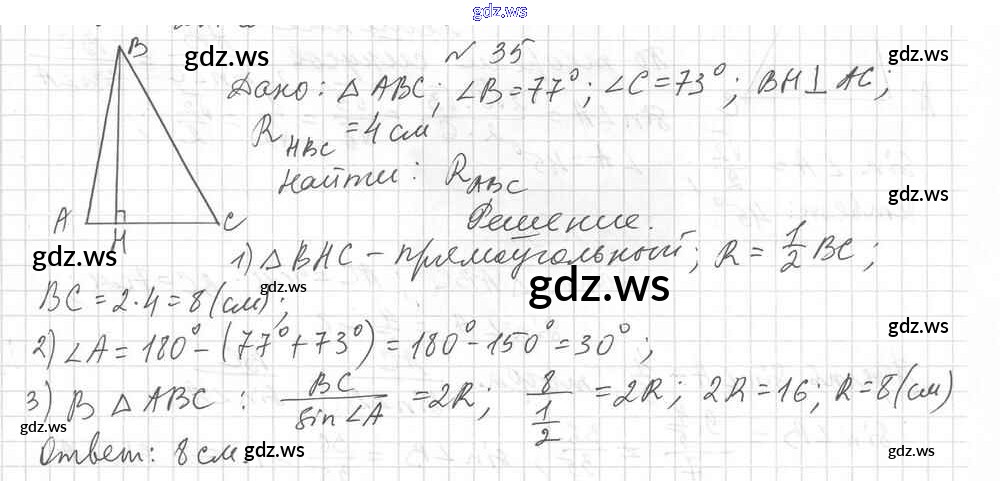 gdz.ws
№ 35
B
gdz.ws
gdz.ws
Дано: △ ABC; ∠B = 77°; ∠C = 73°; BH ⊥ AC;
R_HBC = 4 см
Найти: R_ABC
gdz.ws
A
H
C
Решение.
gdz.ws
1) △ BHC – прямоугольный; R = 1/2 BC;
gdz.ws
gdz.ws
BC = 2·4 = 8 (см);
gdz.ws
2) ∠A = 180° – (77° + 73°) = 180° – 150° = 30°;
3) В △ ABC: BC/sin∠A = 2R; 8/(1/2) = 2R; 2R = 16; R = 8 (см)
gdz.ws
Ответ: 8 см.
gdz.ws
gdz.ws